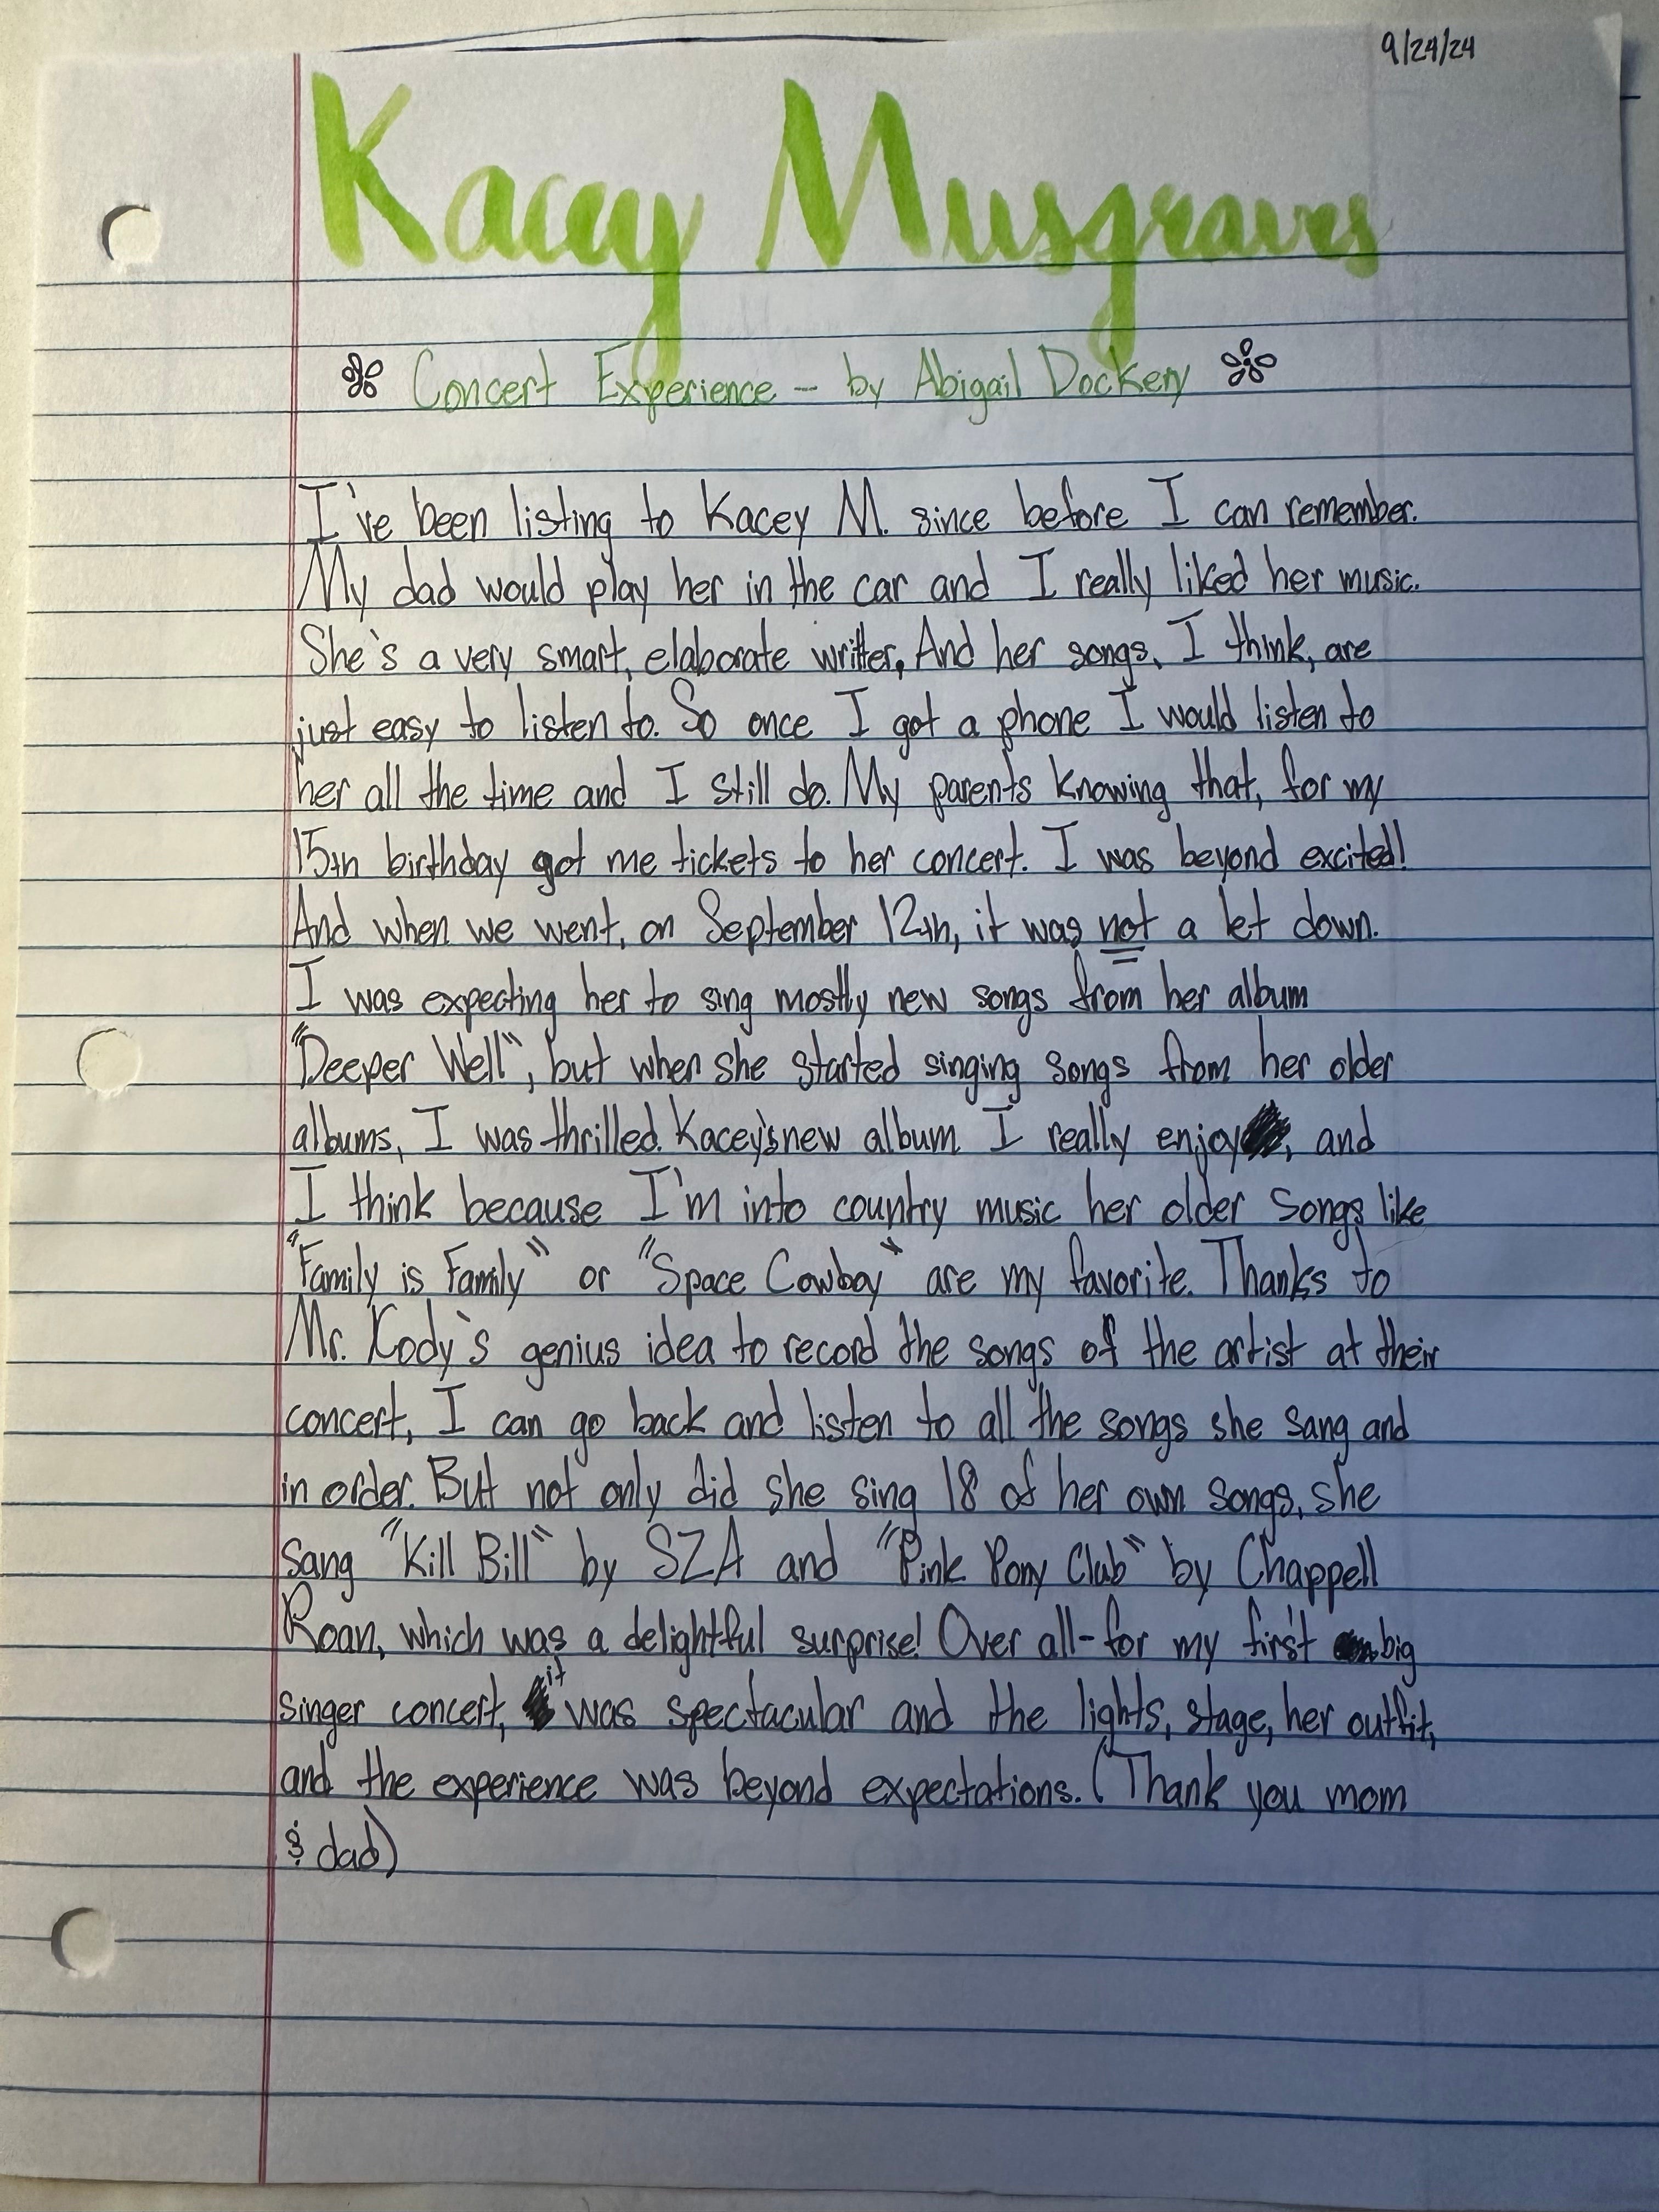 9/24/24
Kacey Musgraves
Concert Experience - by Abigail Dockery
I've been listing to Kacey M. since before I can remember.
My dad would play her in the car and I really liked her music.
She's a very smart, elaborate writter. And her songs, I think, are
just easy to listen to. So once I got a phone I would listen to
her all the time and I still do. My parents knowing that, for my
15th birthday got me tickets to her concert. I was beyond excited!
And when we went, on September 12th, it was not a let down.
I was expecting her to sing mostly new songs from her album
"Deeper Well", but when she started singing songs from her older
albums, I was thrilled. Kacey's new album I really enjoy, and
I think because I'm into country music her older songs like
"Family is Family" or "Space Cowboy" are my favorite. Thanks to
Mr. Kody's genius idea to record the songs of the artist at their
concert, I can go back and listen to all the songs she sang and
in order. But not only did she sing 18 of her own songs, she
sang "Kill Bill" by SZA and "Pink Pony Club" by Chappell
Roan, which was a delightful surprise! Over all- for my first big
singer concert, it was spectacular and the lights, stage, her outfit,
and the experience was beyond expectations. (Thank you mom
& dad)